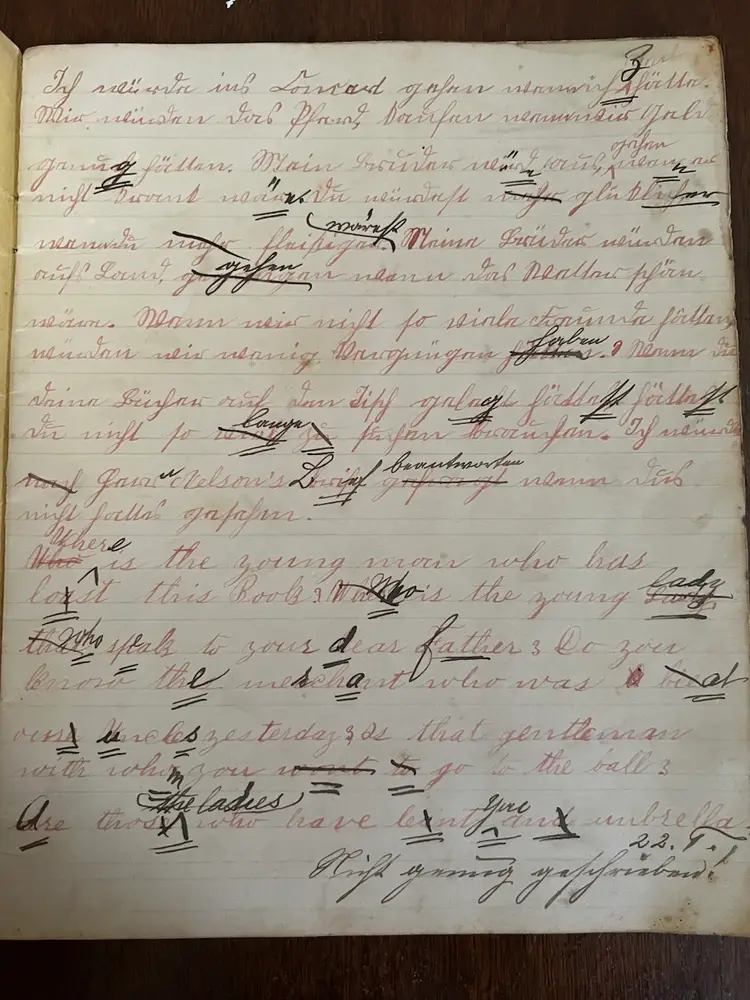 Zeit
Ich würde ins Concert gehen wenn ich Z hätte.
Wir würden das Pferd kaufen wenn wir Geld
gehen
genug hätten. Mein Bruder würde aus, wenn er
nicht krank wäre. Du würdest mehr glücklicher
wärest
wenn du mehr fleißiger. Meine Brüder würden
gehen
aufs Land wenn das Wetter schön
wäre. Wenn wir nicht so viele Freunde hätten
haben
würden wir wenig Vergnügen hätten. Wenn du
deine Bücher auf den Tisch gelegt hättest hättest
lange
du nicht so zu suchen brauchen. Ich würde
beantworten
nach Herrn Nelson's Brief gefragt wenn du's
nicht hattes gesehen.
Where
Who is the young man who has
lady
lost this Book? Who is the young
that who speak to your dear father? Do you
know the merchant who was at
Uncles yesterday? Is that gentleman
with whom you want to go to the ball?
the ladies
you
Are those who have lent and umbrella.
22. 9.
Nicht genug geschrieben!